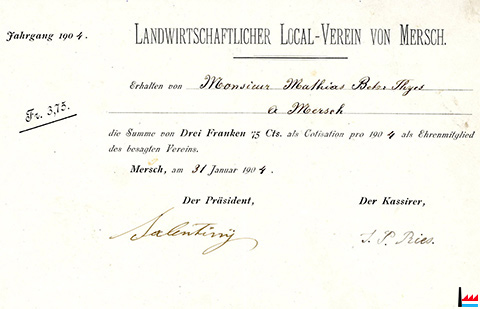 Jahrgang 1904.
LANDWIRTSCHAFTLICHER LOCAL-VEREIN VON MERSCH.
Erhalten von Monsieur Mathias
a Mersch
Fr. 3,75.
die Summe von Drei Franken 75 Cts. als Cotisation pro 1904 als Ehrenmitglied
des besagten Vereins.
Mersch, am 31 Januar 1904.
Der Präsident, Der Kassirer,
Salentiny J. P. Ries.